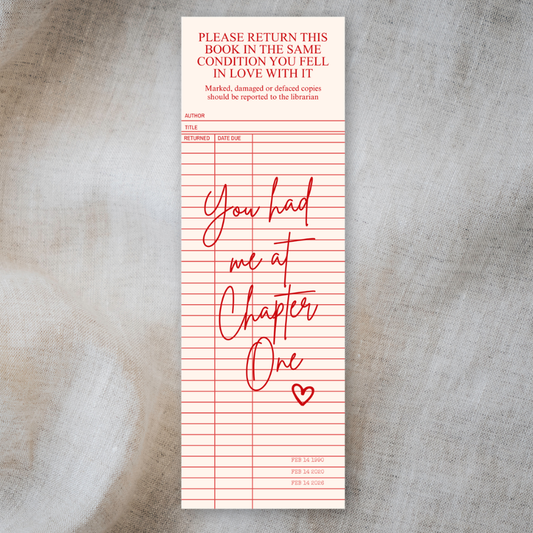 PLEASE RETURN THIS
BOOK IN THE SAME
CONDITION YOU FELL
IN LOVE WITH IT
Marked, damaged or defaced copies
should be reported to the librarian
AUTHOR
TITLE
RETURNED DATE DUE
You had
me at
Chapter
One
FEB 14 1990
FEB 14 2020
FEB 14 2026